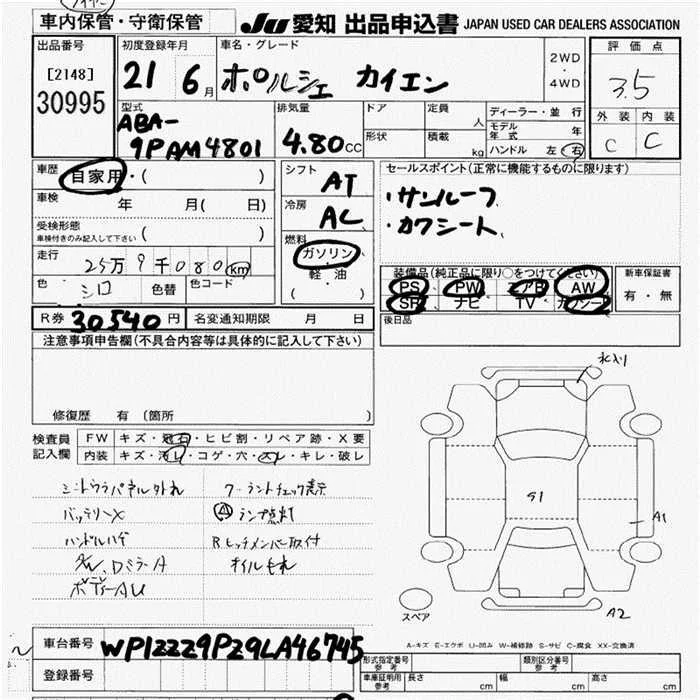 車内保管・守衛保管
JU 愛知 出品申込書 JAPAN USED CAR DEALERS ASSOCIATION
出品番号
[2148]
30995
初度登録年月
21 6月
車名・グレード
ポルシェ カイエン
2WD
・
4WD
評価点
3.5
外装 内装
C C
型式
ABA-
9PAM4801
排気量
4.80CC
ドア
形状
定員 人
積載 kg
ディーラー・並行
モデル年式 年
ハンドル 左・右
車歴
自家用・( )
車検 年 月( 日)
受検形態
車検付きのみ記入して下さい ( )
走行
25万9千080km
色 シロ 色替 色コード
シフト AT
冷房 AC
燃料
ガソリン
軽・油
( )
セールスポイント(正常に機能するものに限ります)
・サンルーフ
・カワシート、
装備品(純正品に限り○をつけてください)
PS PW エアB AW
SR ナビ TV カワシート
新車保証書
有・無
R券 30540円 名変通知期限 月 日
後日品
注意事項申告欄(不具合内容等は具体的に記入して下さい)
修復歴 有(箇所 )
検査員
記入欄
FW キズ・飛石・ヒビ割・リペア跡・X要
内装 キズ・汚レ・コゲ・穴・スレ・キレ・破レ
バッテリーX
ハンドルハゲ
ボディーAU
クーラントチェック表示
ランプ点灯
Rヒッチメンバー取付
オイルもれ
水入り
G1
A1
A2
スペア
A-キズ E-エクボ U-凹み W-補修跡 S-サビ C-腐食 XX-交換済
車台番号 WP1ZZZ9PZ9LA46745
登録番号
形式指定番号
参考
類別区分番号
参考
車庫証明用
参考
長さ cm 幅 cm 高さ cm